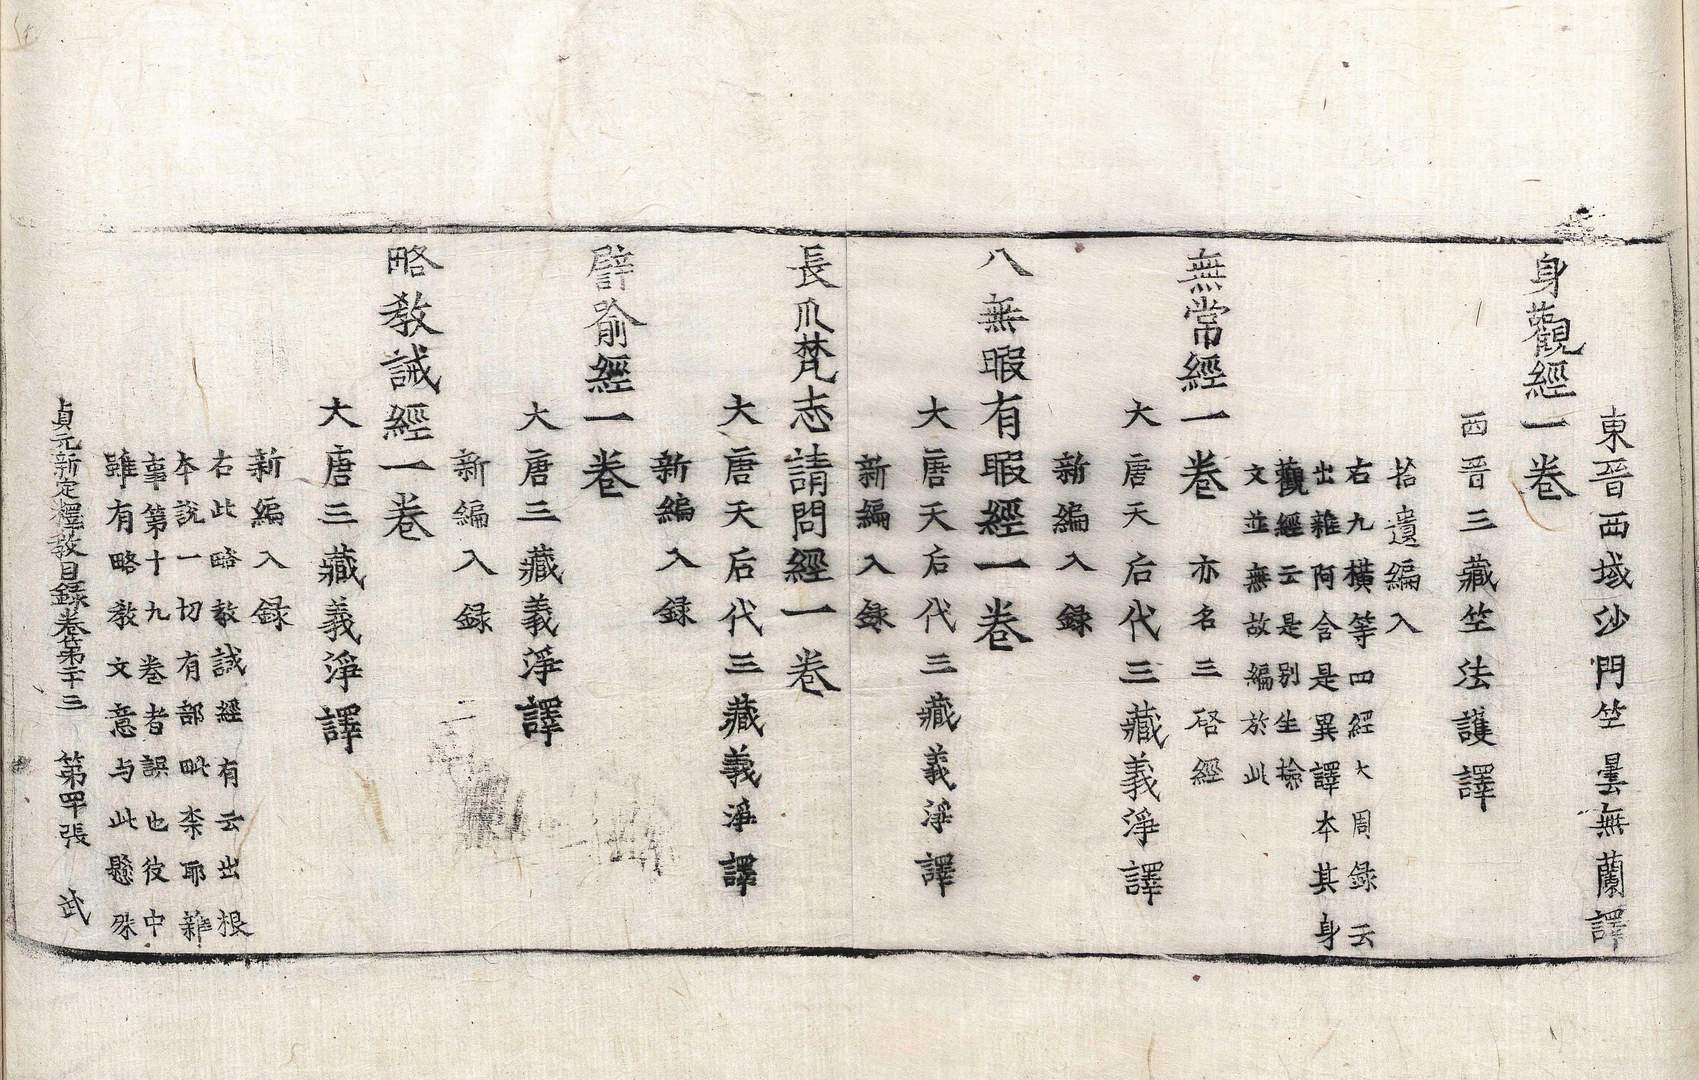 東晉西域沙門竺曇無蘭譯
身觀經一卷
西晉三藏竺法護譯
拾遺編入
右九橫等四經大周録云
出雜阿含是異譯本其身
觀經云是別生撿
文並無故編於此
無常經一卷 亦名三啓經
大唐天后代三藏義淨譯
新編入録
八無暇有暇經一卷
大唐天后代三藏義淨譯
新編入録
長爪梵志請問經一卷
大唐天后代三藏義淨譯
新編入録
譬喻經一卷
大唐三藏義淨譯
新編入録
略教誡經一卷
大唐三藏義淨譯
新編入録
右此略教誡經有云出根
本說一切有部毗柰耶雜
事第十九卷者誤也彼中
雖有略教文意与此懸殊
貞元新定釋教目錄卷第二十三 第四十張 武